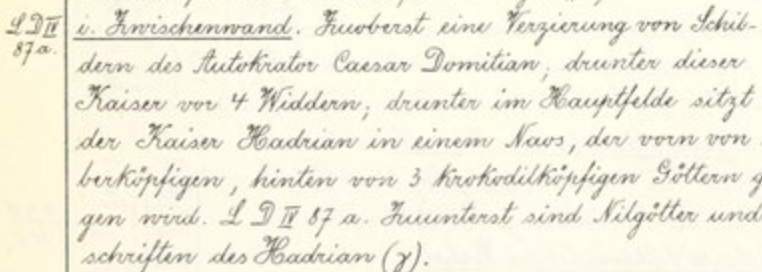 L D IV
87 a.
i. Zwischenwand. Zuoberst eine Verzierung von Schil-
dern des Autokrator Caesar Domitian; drunter dieser
Kaiser vor 4 Widdern; drunter im Hauptfelde sitzt
der Kaiser Hadrian in einem Naos, der vorn von
berköpfigen, hinten von 3 krokodilköpfigen Göttern g
gen wird. L D IV 87 a. Zuunterst sind Nilgötter und
schriften des Hadrian (γ).